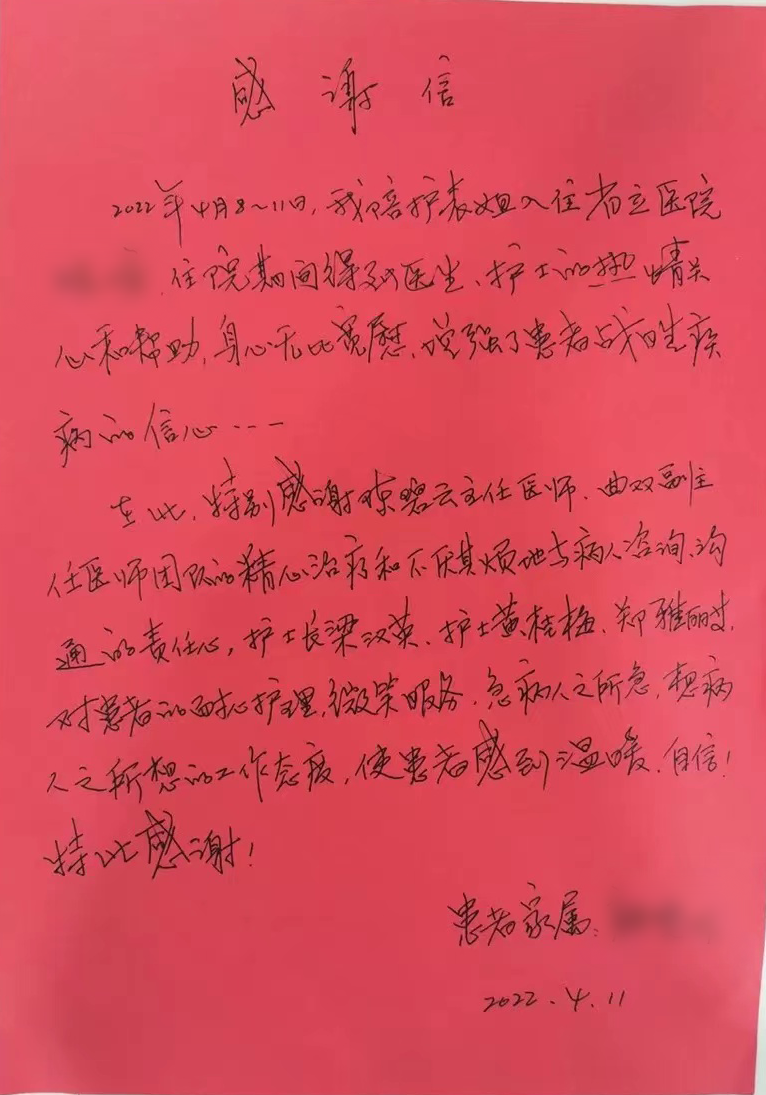 感谢信
2022年4月8~11日,我陪护表姐入住省立医院
住院期间得到医生、护士的热情关
心和帮助,身心无比宽慰,增强了患者战胜疾
病的信心……
在此,特别感谢 碧云主任医师、曲双副主
任医师团队的精心治疗和不厌其烦地与病人咨询、沟
通的责任心,护士长梁汉英、护士黄桂梅、郑雅丽对,
对患者的耐心护理,微笑服务,急病人之所急,想病
人之所想的工作态度,使患者感到温暖、自信!
特此感谢!
患者家属:
2022.4.11